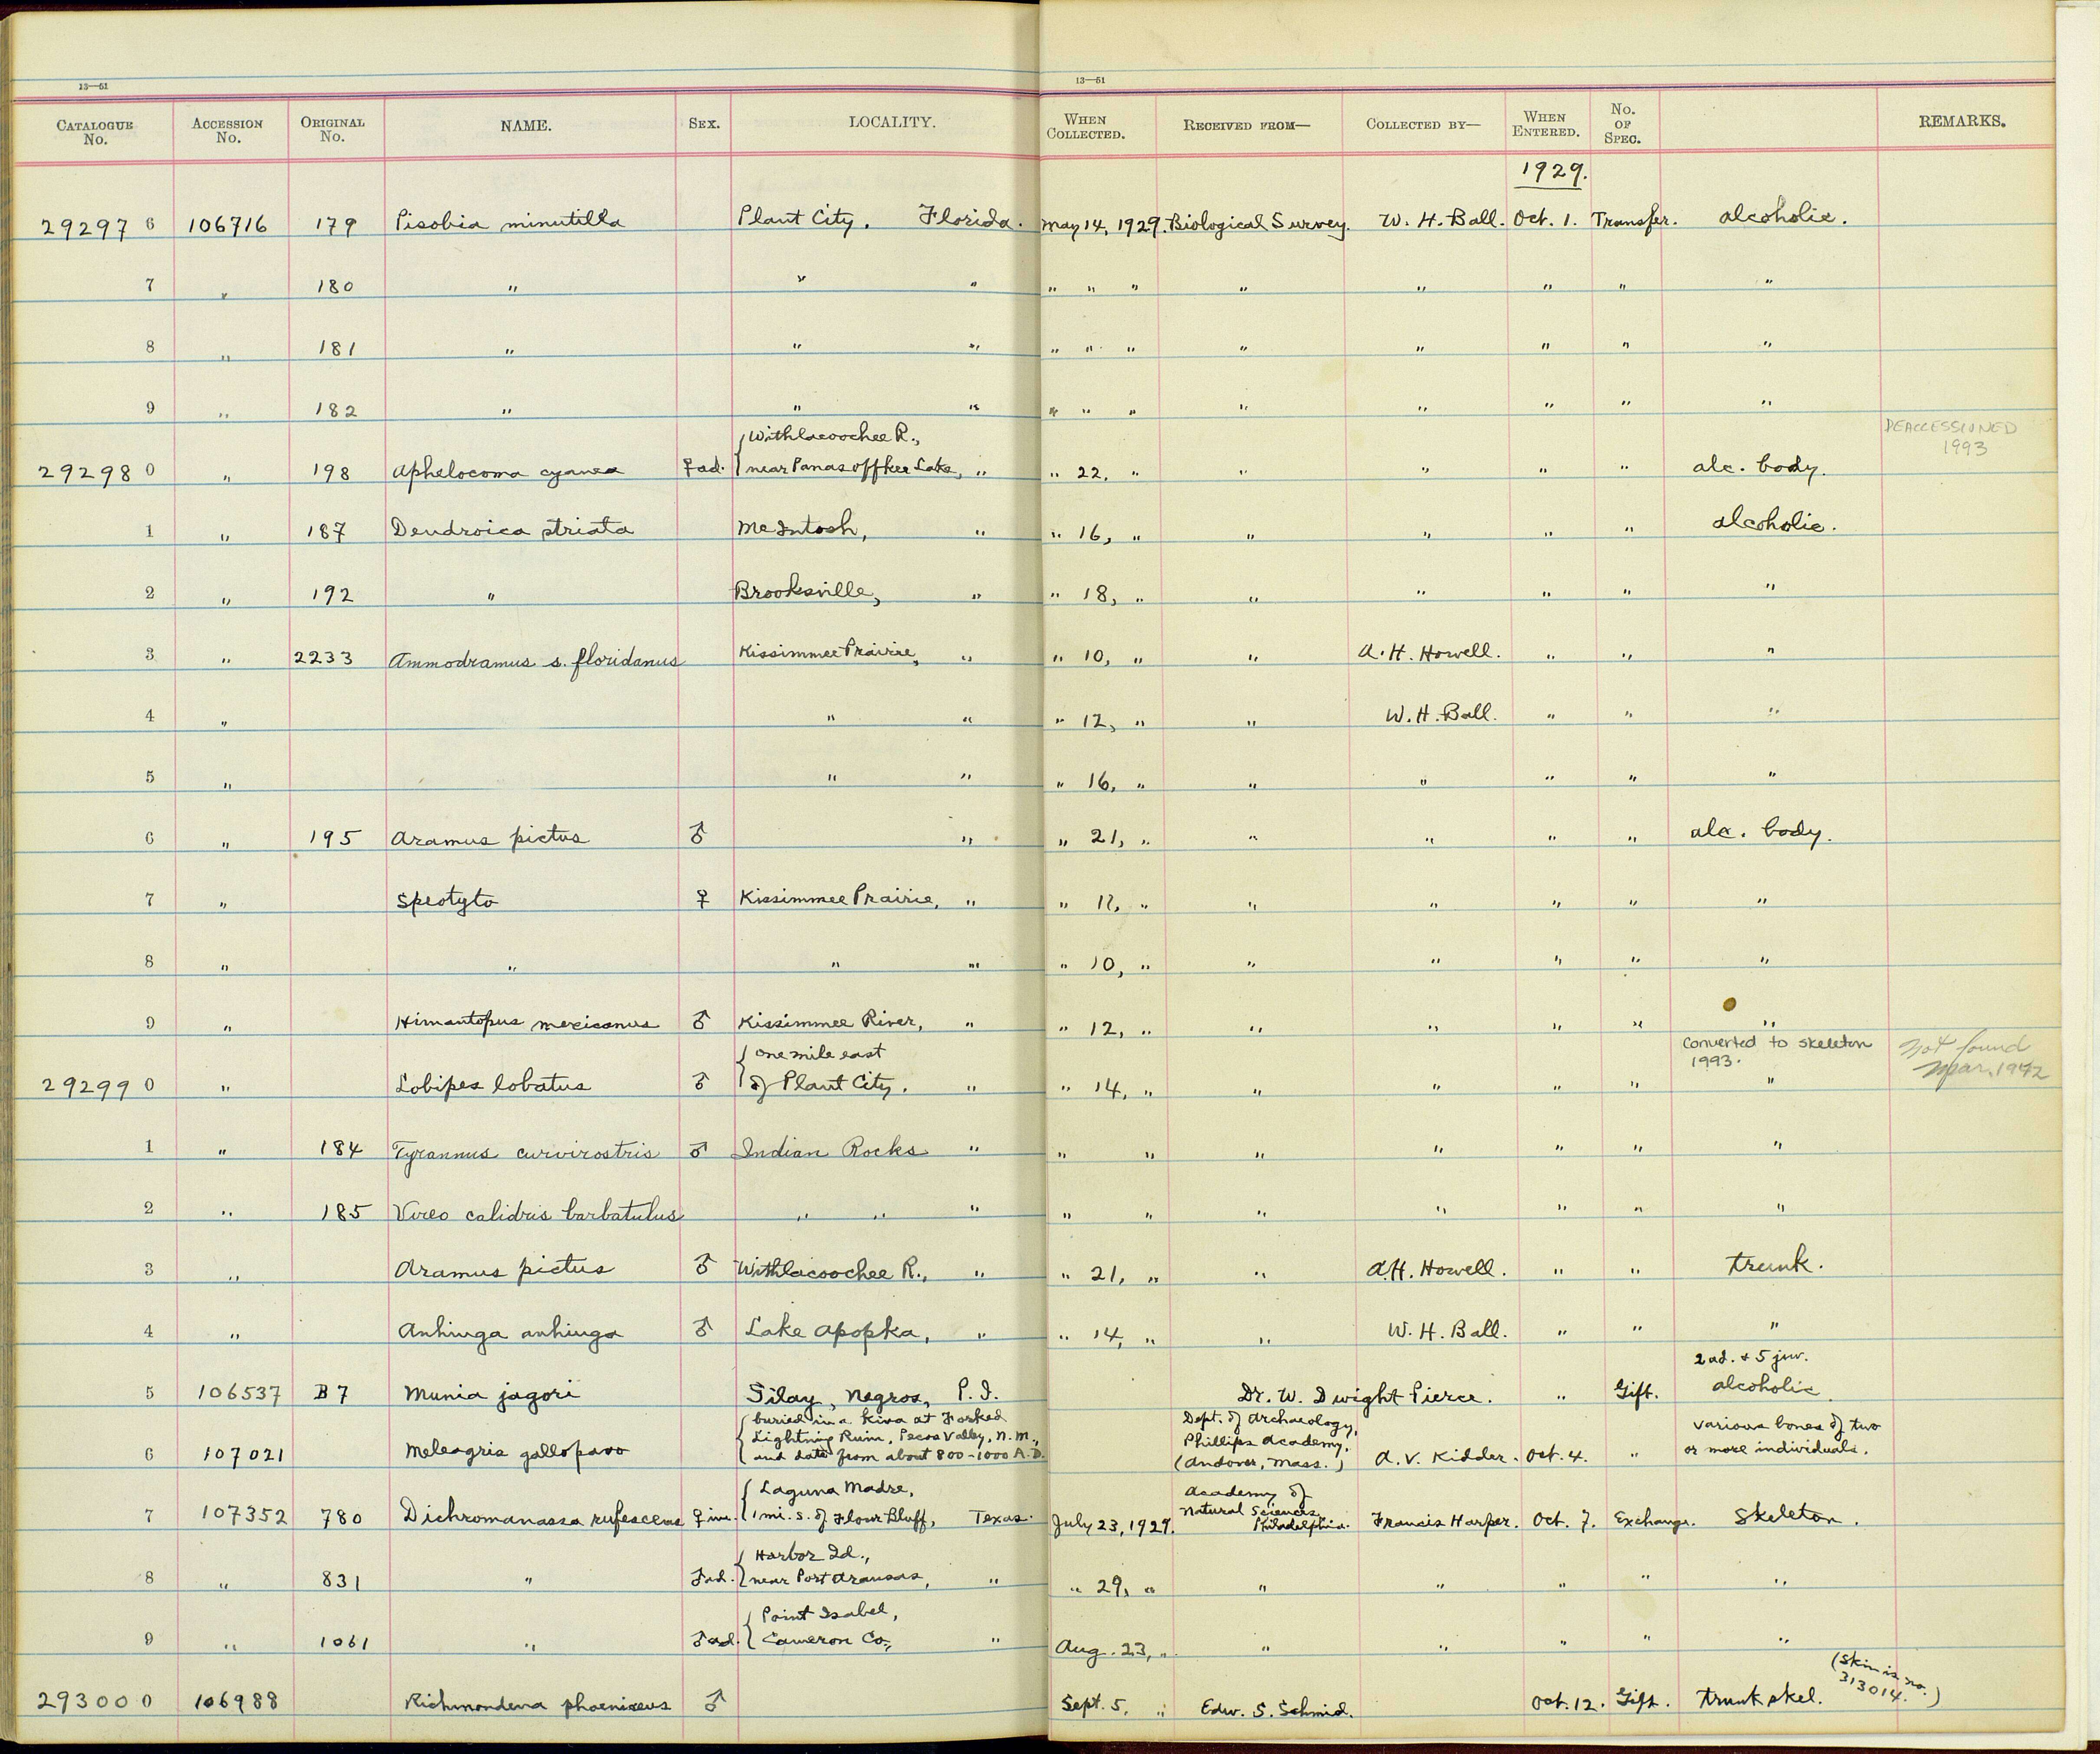 13—51
13—51
CATALOGUE No. ACCESSION No. ORIGINAL No. NAME. SEX. LOCALITY. WHEN COLLECTED. RECEIVED FROM— COLLECTED BY— WHEN ENTERED. No. OF SPEC. REMARKS.
1929.
29297 6 106716 179 Pisobia minutilla Plant City. Florida. May 14, 1929. Biological Survey. W. H. Ball. Oct. 1. Transfer. alcoholic.
7 " 180 " " " " " " " " " " "
8 " 181 " " " " " " " " " " "
9 " 182 " " " " " " " " " " "
DEACCESSIONED
1993
29298 0 " 198 Aphelocoma cyanea ♀ad. { Withlacoochee R.,
near Panasoffkee Lake, " " 22, " " " " " alc. body.
1 " 187 Dendroica striata McIntosh, " " 16, " " " " " alcoholic.
2 " 192 " Brooksville, " " 18, " " " " " "
3 " 2233 Ammodramus s. floridanus Kissimmee Prairie, " " 10, " " A. H. Howell. " " "
4 " " " " 12, " " W. H. Ball. " " "
5 " " " " 16, " " " " " "
6 " 195 Aramus pictus ♂ " " 21, " " " " " alc. body.
7 " Speotyto ♀ Kissimmee Prairie, " " 12, " " " " " "
8 " " " " " 10, " " " " " "
9 " Himantopus mexicanus ♂ Kissimmee River, " " 12, " " " " " "
Converted to skeleton
1993.
Not found
Mar. 1942
29299 0 " Lobipes lobatus ♂ { One mile east
of Plant City. " " 14, " " " " " "
1 " 184 Tyrannus curvirostris ♂ Indian Rocks " " " " " " " "
2 " 185 Vireo calidris barbatulus " " " " " " " " " "
3 " Aramus pictus ♂ Withlacoochee R., " " 21, " " A.H. Howell. " " trunk.
4 " Anhinga anhinga ♂ Lake Apopka, " " 14, " " W. H. Ball. " " "
2 ad. & 5 juv.
5 106537 B 7 Munia jagori Silay, Negros, P. I. Dr. W. Dwight Pierce. " Gift. alcoholic.
6 107021 Meleagris gallopavo { buried in a Kiva at Forked
Lightning Ruin, Pecos Valley, N. M.,
and date from about 800-1000 A.D. Dept. of Archaeology,
Phillips Academy,
(Andover, Mass.) A. V. Kidder. Oct. 4. " various bones of two
or more individuals.
7 107352 780 Dichromanassa rufescens ♀ im. { Laguna Madre,
1 mi. S. of Flour Bluff, Texas. July 23, 1929. Academy of
Natural Sciences,
Philadelphia. Francis Harper. Oct. 7. Exchange. Skeleton.
8 " 831 " ♂ad. { Harbor Id.,
near Port Aransas, " " 29, " " " " " "
9 " 1061 " ♂ad. { Point Isabel,
Cameron Co., " Aug. 23, " " " " " "
29300 0 106988 Richmondena phoeniceus ♂ Sept. 5, " Edw. S. Schmid. Oct. 12. Gift. trunk skel. (Skin is no.
313014.)